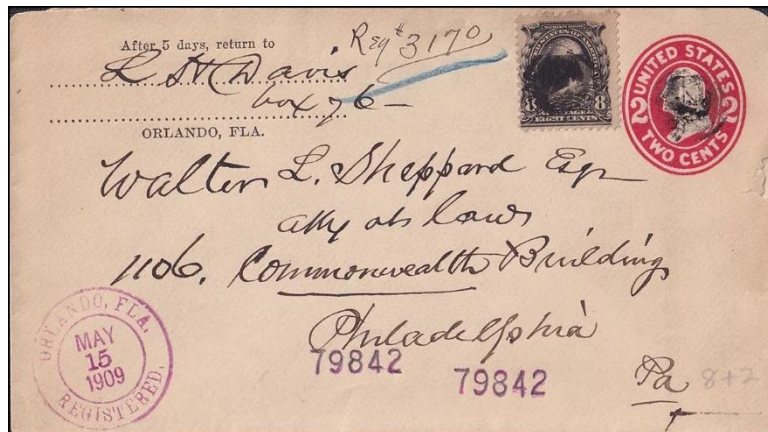 After 5 days, return to
Reg # 3170
L H Davis
box 76
ORLANDO, FLA.
8 8
EIGHT CENTS
UNITED STATES
2 2
TWO CENTS
Walter L. Sheppard Esqr
atty at law
1106. Commonwealth Building
Philadelphia
79842
79842
Pa
8+2
ORLANDO, FLA.
MAY
15
1909
REGISTERED.